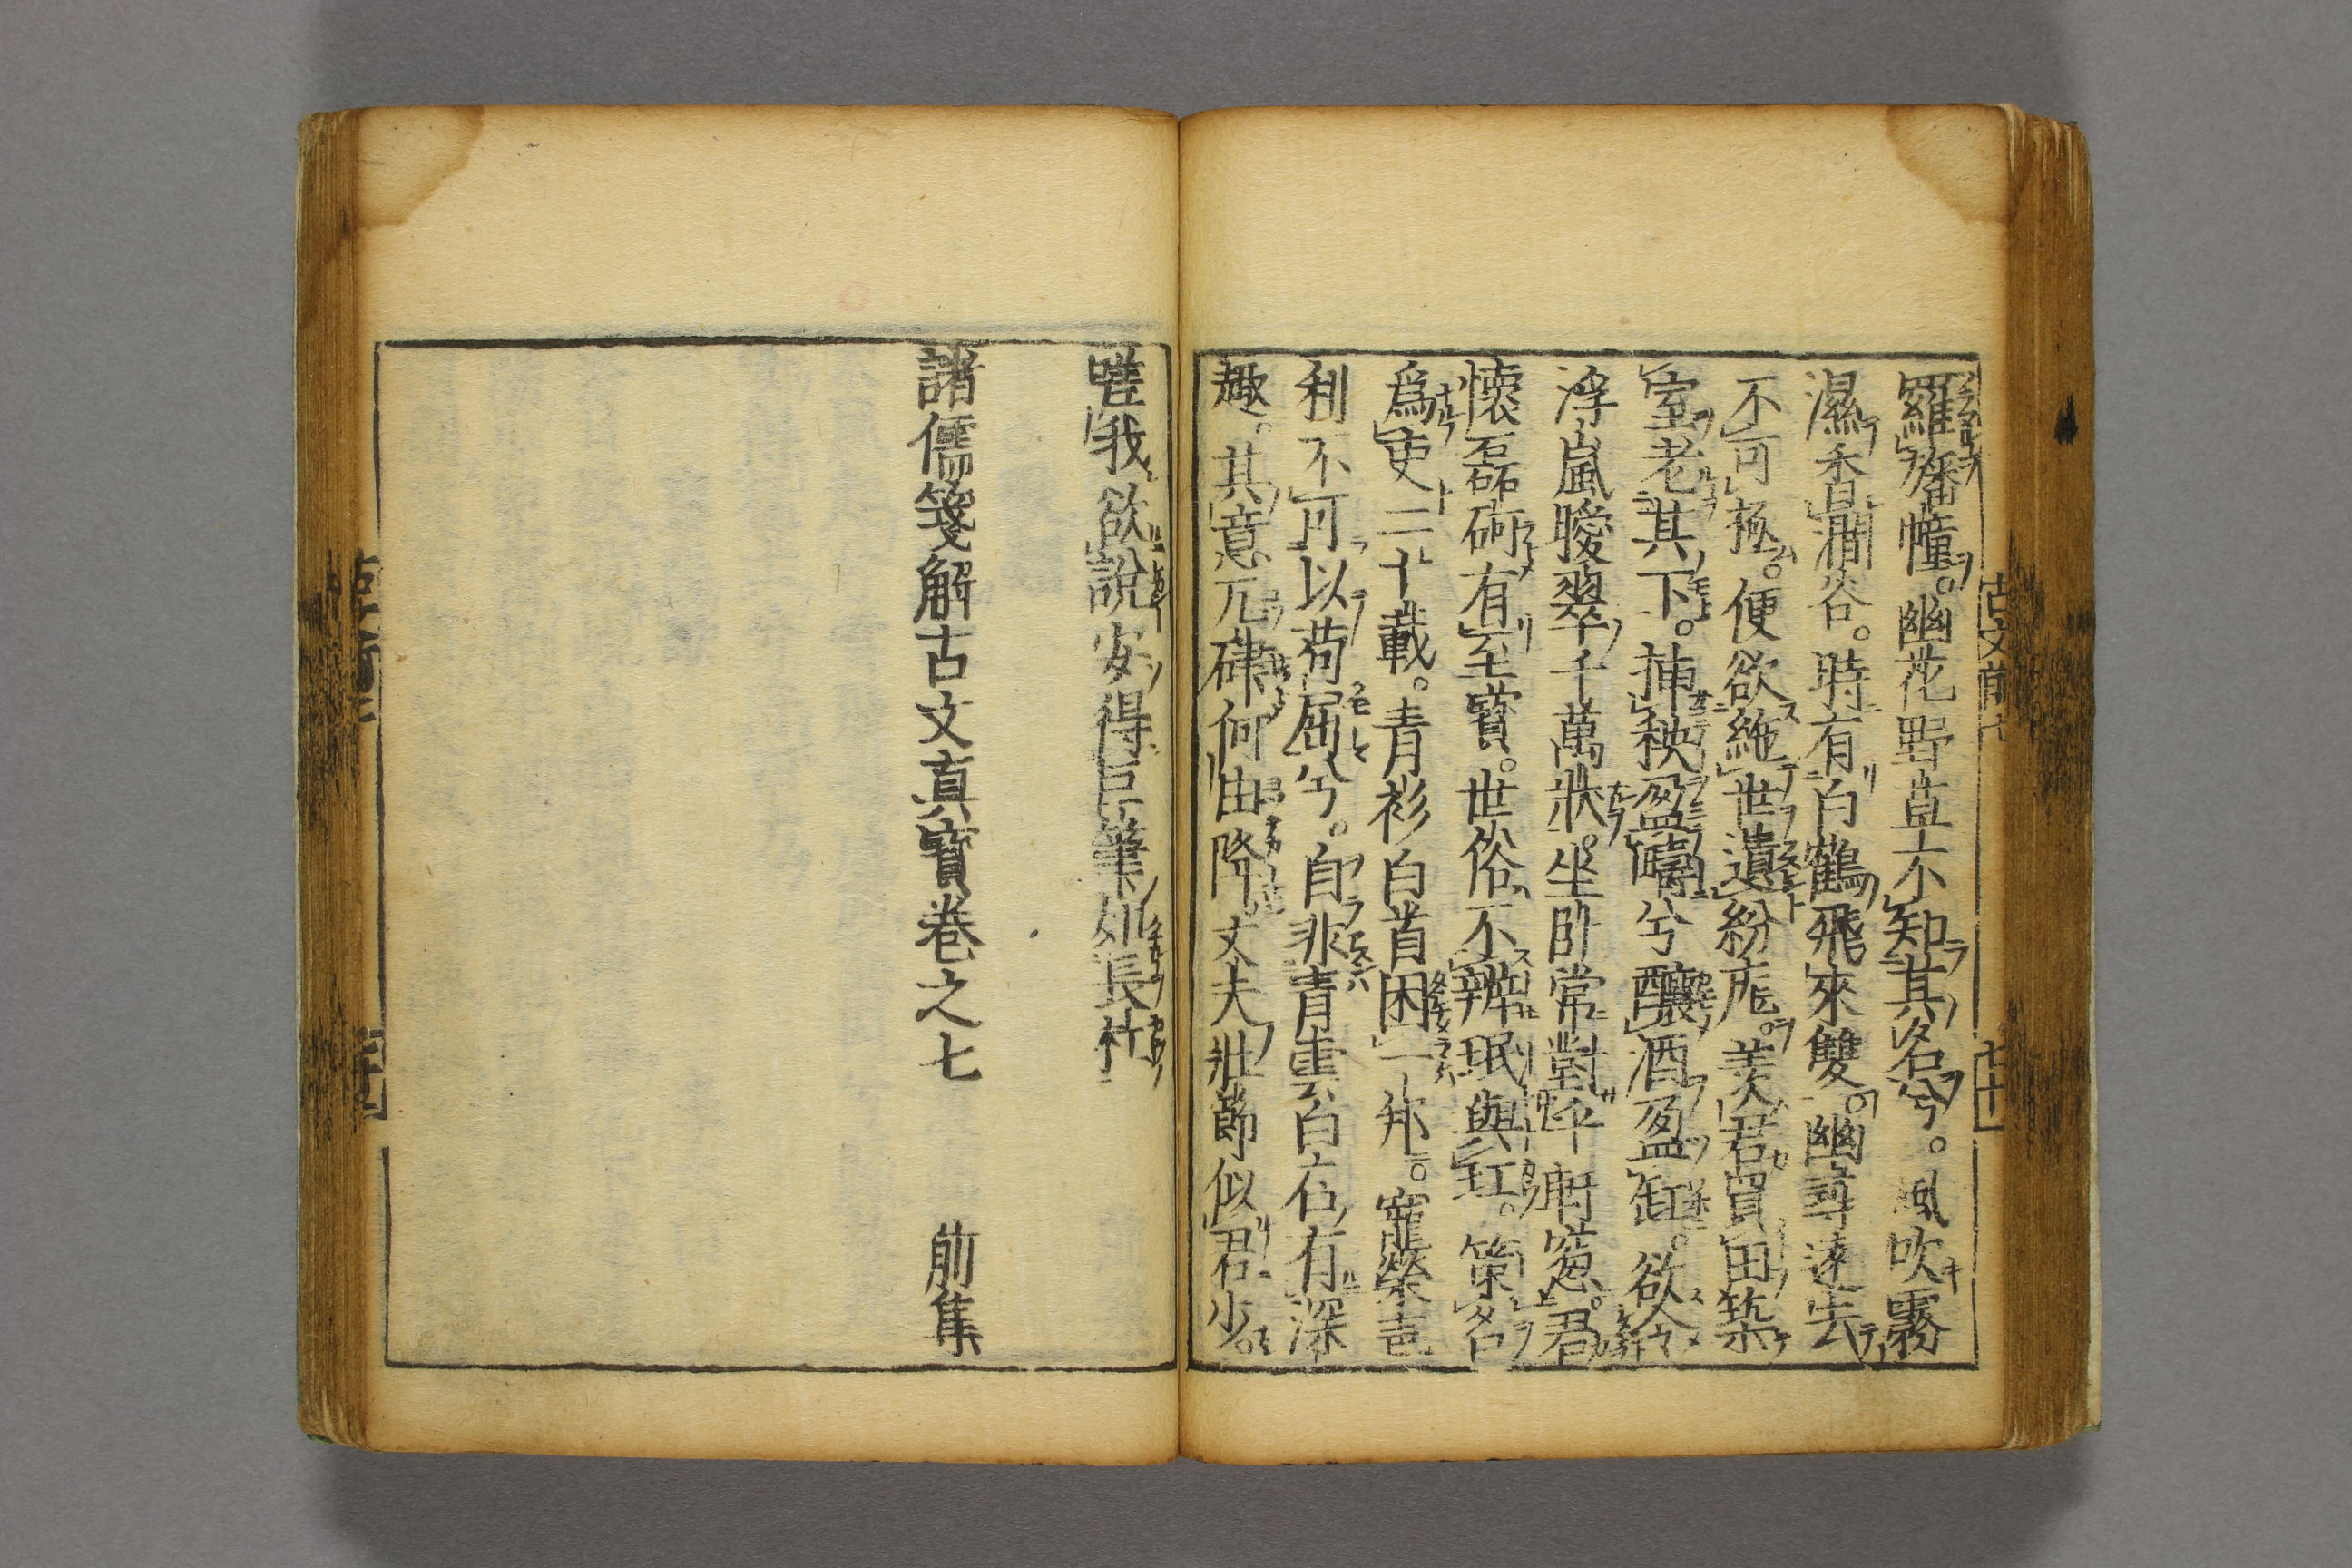 羅旛幢。幽花野草不知其名兮。風吹霧
濕香澗谷。時有白鶴飛來雙。幽尋遠去
不可極。便欲絶世遺紛厖。羡君買田築
室老其下。挿秧盈疇兮釀酒盈缸。欲令
浮嵐曖翠千萬狀。坐臥常對乎軒窓。君
懷磊砢有至寶。世俗不辨珉與玒。策名
爲吏二十載。青衫白首困一邦。寵榮声
利不可以苟屈兮。自非青雲白石有深
趣。其意兀硉何由降。丈夫壯節似君少。
嗟我欲說安得巨筆如長杠
諸儒箋解古文真寶卷之七 前集
古文前
七十一